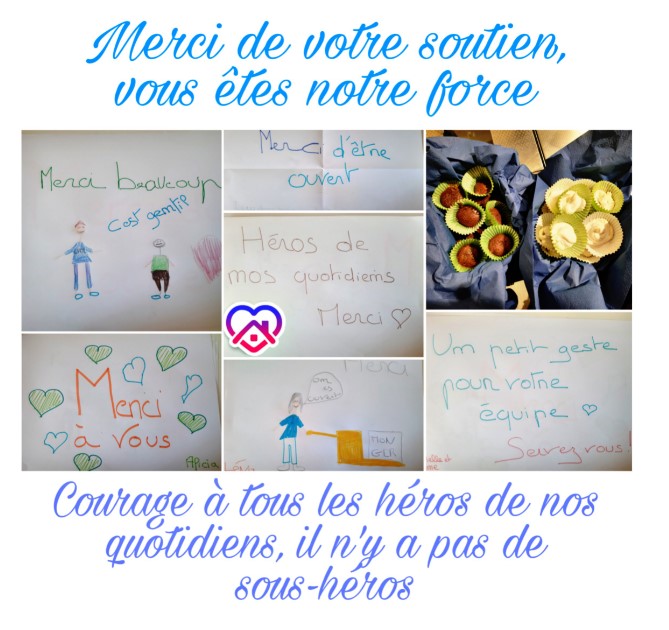 Merci de votre soutien,
vous êtes notre force
Merci beaucoup
C'est gentil
Merci d'être
ouvert
Héros de
nos quotidiens
Merci
Merci
à vous
Alicia
Merci
MON
Un petit geste
pour votre
équipe
Servez vous!
Courage à tous les héros de nos
quotidiens, il n'y a pas de
sous-héros